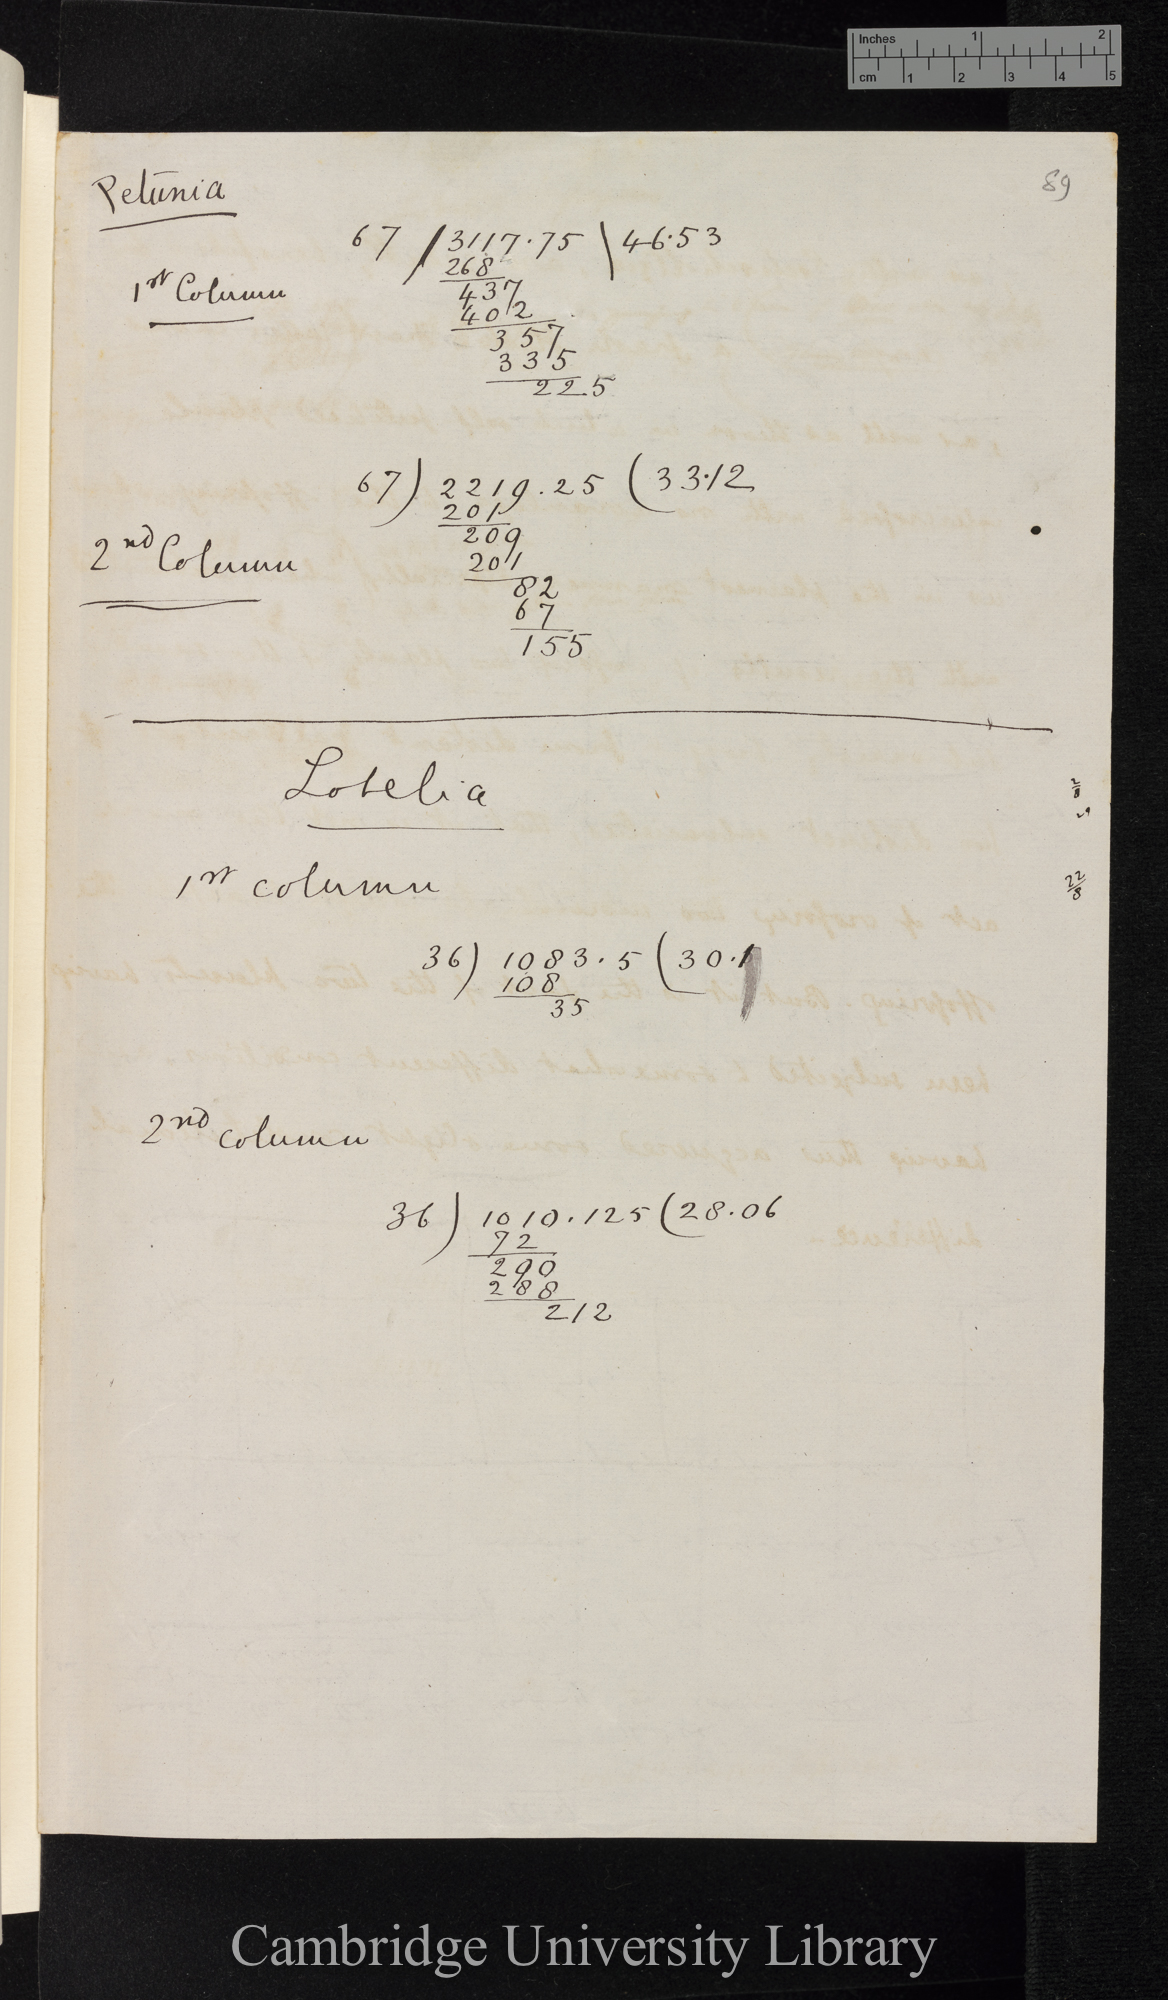 Inches 1 2
cm 1 2 3 4 5
89
Petunia
67 / 3117.75 \ 46.53
268
1st Column
437
402
357
335
22.5
67 ) 2219.25 ( 33.12
201
209
2nd Column
201
82
67
155
Lobelia
2/8
1st column
22/8
36 ) 1083.5 ( 30.1
108
35
2nd column
36 ) 1010.125 ( 28.06
72
290
288
212
Cambridge University Library